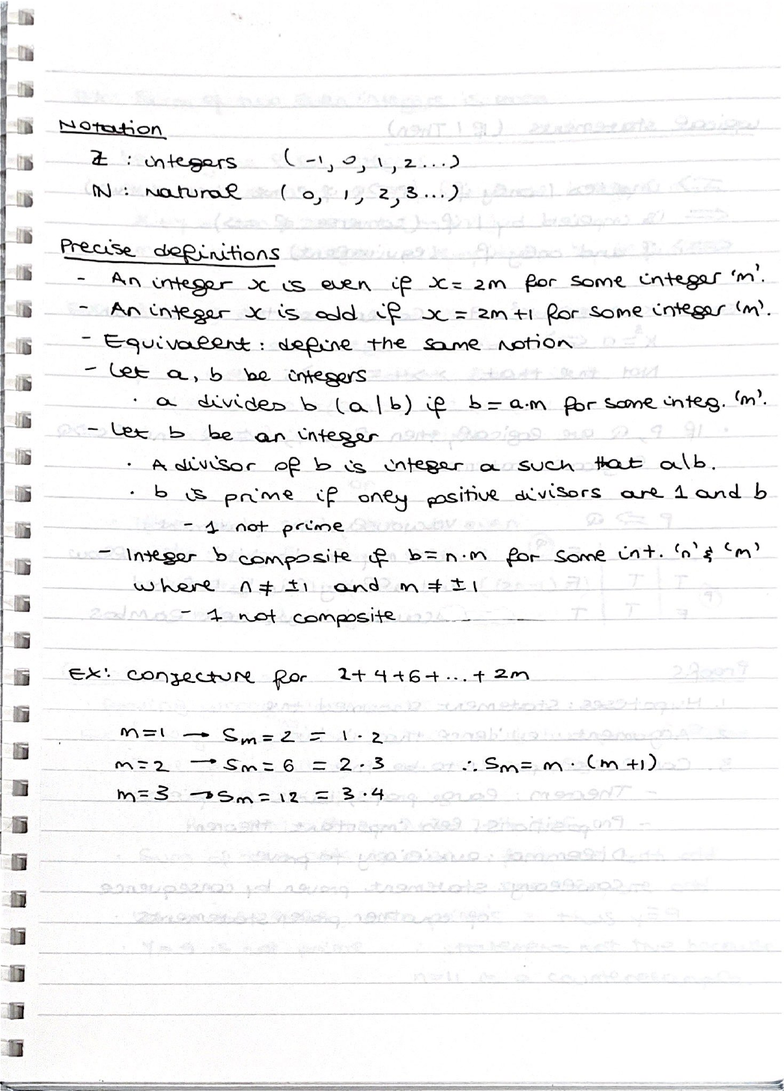 Notation
Z : integers (-1, 0, 1, 2...)
N : Natural (0, 1, 2, 3...)
Precise definitions
- An integer x is even if x = 2m for some integer 'm'.
- An integer x is odd if x = 2m+1 for some integer 'm'.
- Equivalent : define the same notion
- Let a, b be integers
· a divides b (a|b) if b = a·m for some integ. 'm'.
- Let b be an integer
· A divisor of b is integer a such that a|b.
· b is prime if only positive divisors are 1 and b
- 1 not prime
- Integer b composite if b = n·m for some int. 'n' & 'm'
where n ≠ ±1 and m ≠ ±1
- 1 not composite
EX: conjecture for 2+4+6+...+2m
m=1 → Sm = 2 = 1·2
m=2 → Sm = 6 = 2·3 ∴ Sm = m·(m+1)
m=3 → Sm = 12 = 3·4